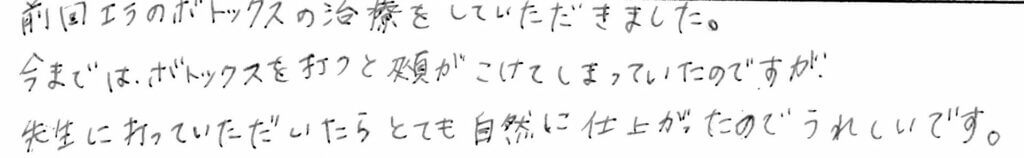 前回エラのボトックスの治療をしていただきました。
今までは、ボトックスを打つと頬がこけてしまっていたのですが、
先生に打っていただいたらとても自然に仕上がったのでうれしいです。